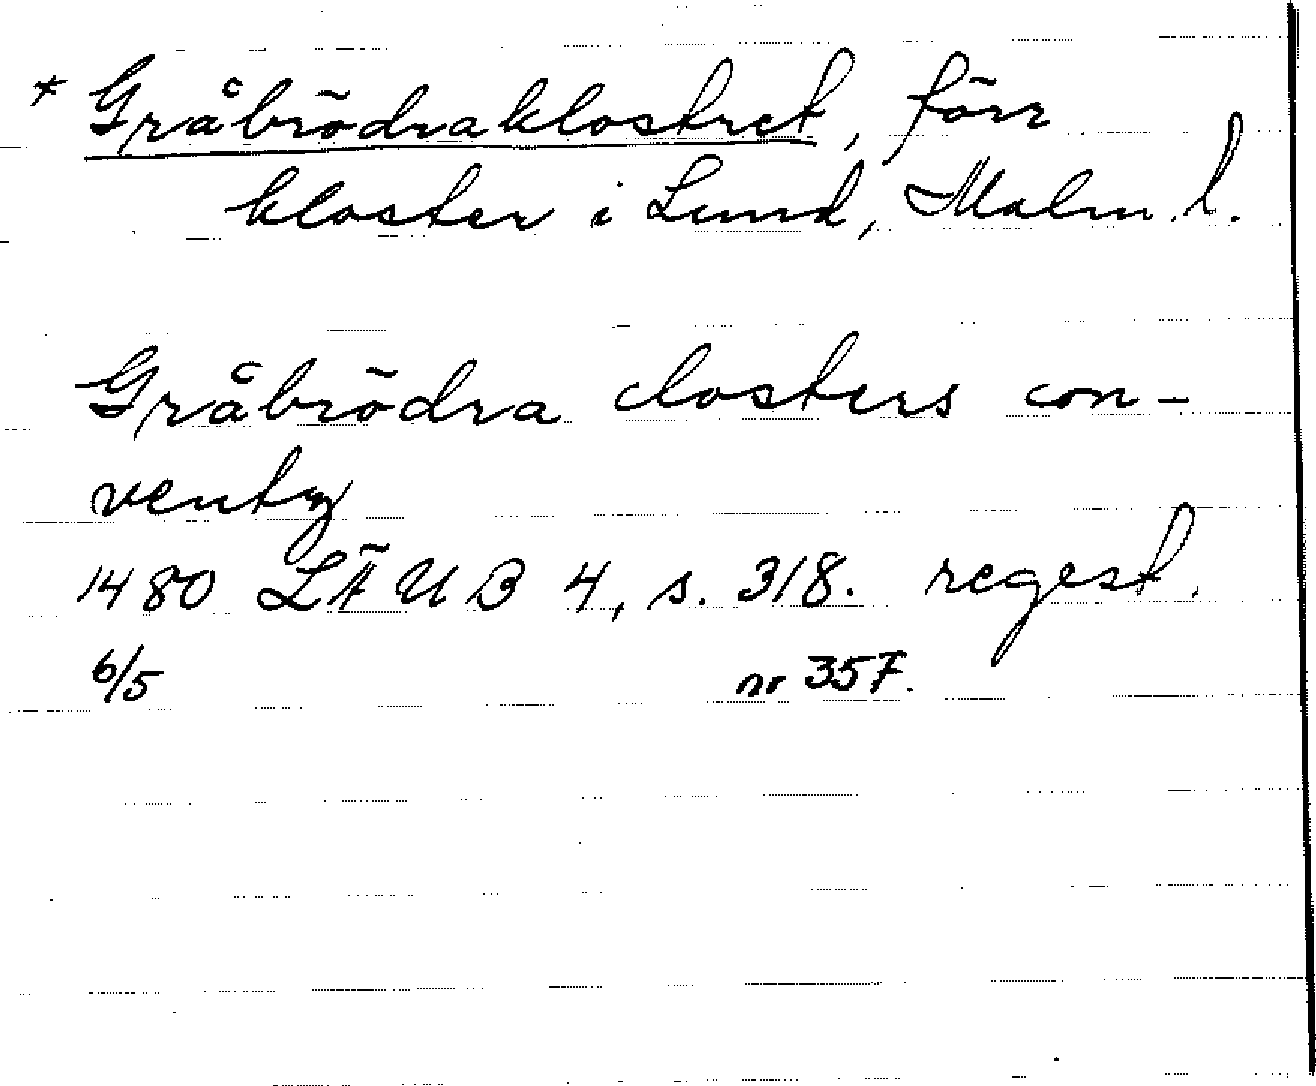 * Gråbrödraklostret, förr
kloster i Lund, Malm. l.
Gråbrödra closters con-
ventz
1480 LÄUB 4, s. 318. regest.
6/5 nr 357.